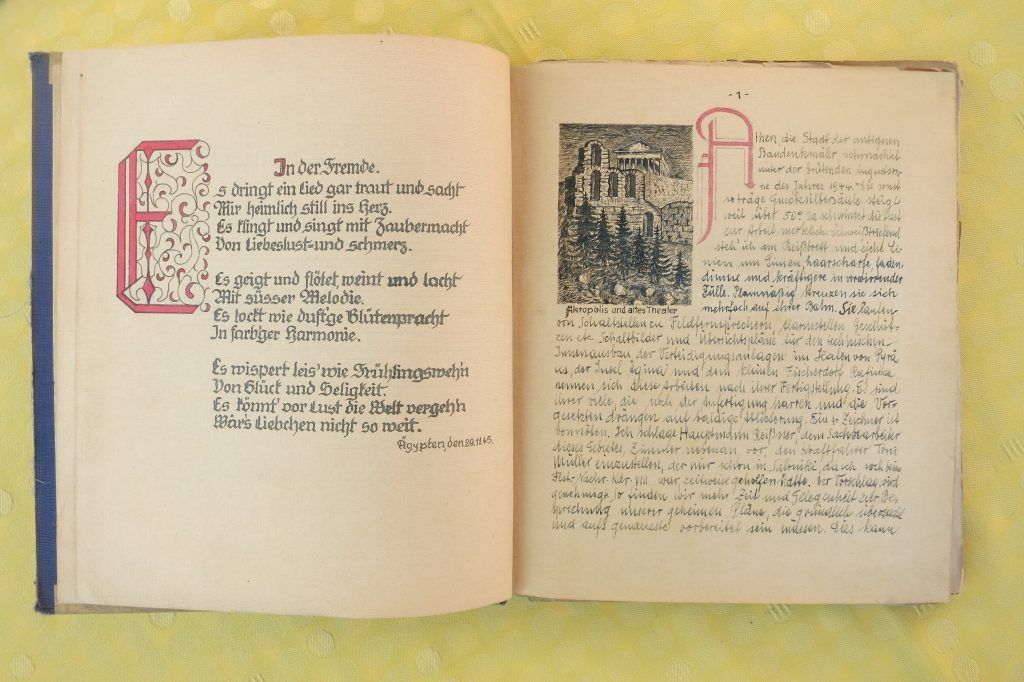 In der Fremde.
Es dringt ein Lied gar traut und sacht
Mir heimlich still ins Herz.
Es klingt und singt mit Zaubermacht
Von Liebeslust- und schmerz.
Es geigt und flötet, weint und lacht
Mit süsser Melodie.
Es lockt wie duft'ge Blütenpracht
In farb'ger Harmonie.
Es wispert leis' wie Frühlingsweh'n
Von Glück und Seligkeit.
Es könnt' vor Lust die Welt vergehn
Wär's Liebchen nicht so weit.
Ägypten, den 29.11.45.
- 1 -
Athen, die Stadt der antiken
Baudenkmäler schmachtet
unter der brütenden Augustson-
ne des Jahres 1944. Die sonst
so träge Quecksilbersäule steigt
weit über 50°. So schwindet die Lust
zur Arbeit merklich. Schweißtriefend
steh' ich am Reißbrett und ziehe Li-
nien um Linien, haarscharfe faden-
dünne und kräftigere in verwirrender
Fülle. Planmäßig kreuzen sie sich
mehrfach auf ihrer Bahn. Sie laufen
Akropolis und altes Theater
von Schaltstellen zu Feldfernsprechern, Alarmstellen, Geschüt-
zen etc. Schaltbilder und Übersichtspläne für den technischen
Innenausbau der Verteidigungsanlagen im Hafen von Pyrä-
us, der Insel Ägina und dem kleinen Fischerdorf
nennen sich diese Arbeiten nach ihrer Fertigstellung. Es sind
ihrer viele die noch der Anfertigung harren und die Vor-
gesetzten drängen auf baldige Ablieferung. Ein 2. Zeichner ist
vonnöten. Ich schlage Hauptmann Reißner, dem Sachbearbeiter
dieses Gebietes, Zimmer nebenan, vor, den Kraftfahrer Toni
Müller einzustellen, der mir schon in Saloniki, da ich noch beim
Fest.-Nachr. Kdr. war, zeitweise geholfen hatte. Der Vorschlag wird
genehmigt. So finden wir mehr Zeit und Gelegenheit zur Be-
sprechung unserer geheimen Pläne, die gründlich überdacht
und aufs genaueste vorbereitet sein müssen. Dies kann